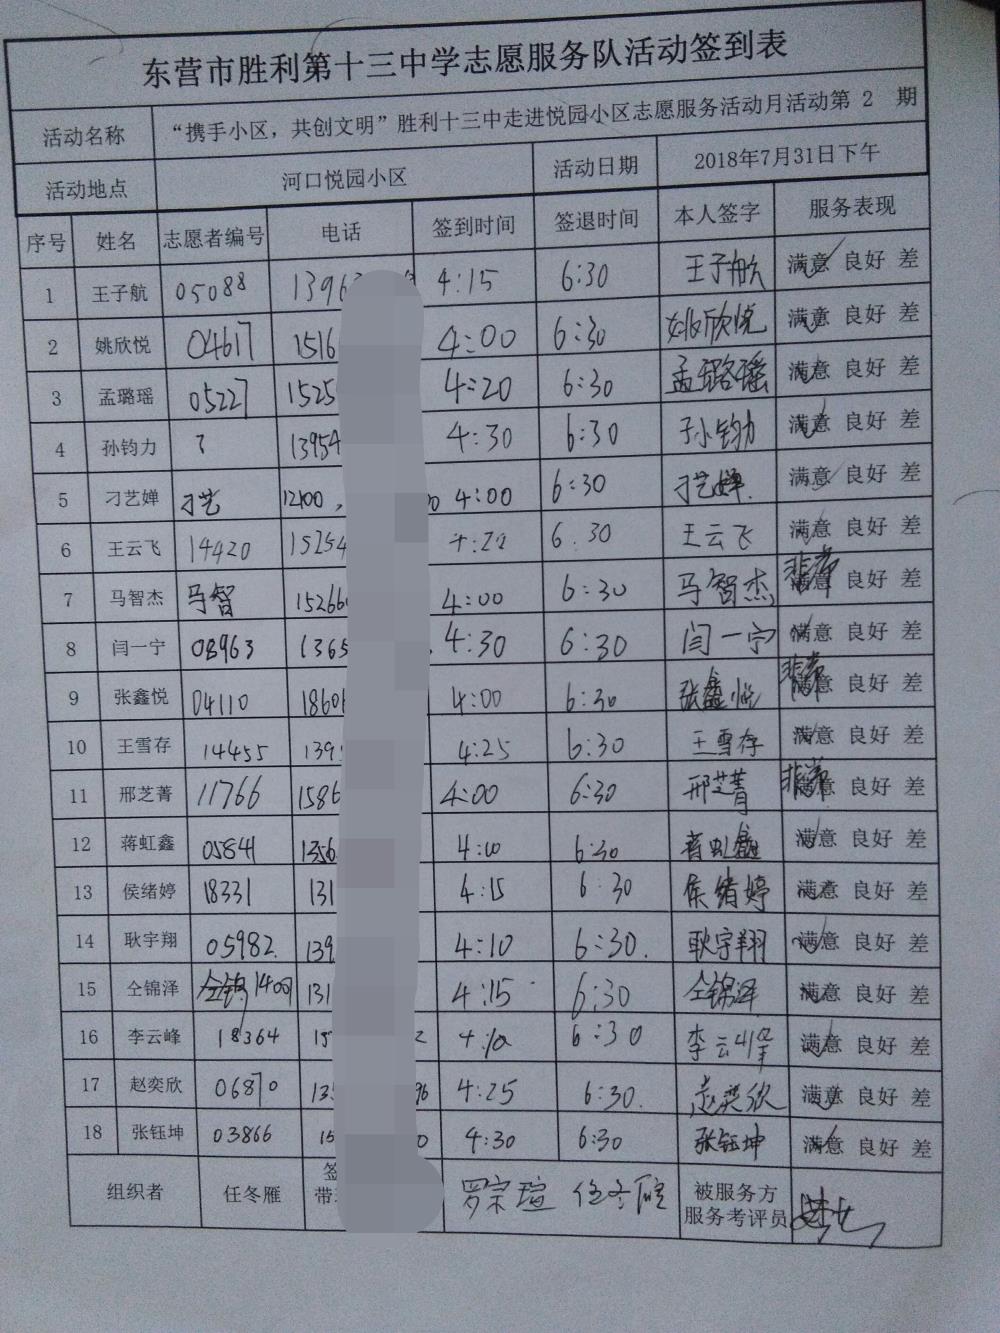 东营市胜利第十三中学志愿服务队活动签到表
活动名称 “携手小区，共创文明”胜利十三中走进悦园小区志愿服务活动月活动第 2 期
活动地点 河口悦园小区 活动日期 2018年7月31日下午
序号 姓名 志愿者编号 电话 签到时间 签退时间 本人签字 服务表现
1 王子航 05088 1396 4:15 6:30 王子航 满意 良好 差
2 姚欣悦 04617 1516 4:00 6:30 姚欣悦 满意 良好 差
3 孟璐瑶 05227 1525 4:20 6:30 孟璐瑶 满意 良好 差
4 孙钧力 ? 13954 4:30 6:30 孙钧力 满意 良好 差
5 刁艺婵 刁艺 4:00 6:30 刁艺婵 满意 良好 差
6 王云飞 14420 15254 4:20 6:30 王云飞 满意 良好 差
7 马智杰 马智 15266 4:00 6:30 马智杰 非常满意 良好 差
8 闫一宁 08963 1365 4:30 6:30 闫一宁 满意 良好 差
9 张鑫悦 04110 1860 4:00 6:30 张鑫悦 非常满意 良好 差
10 王雪存 14455 139 4:25 6:30 王雪存 满意 良好 差
11 邢芝菁 11766 1586 4:00 6:30 邢芝菁 非常满意 良好 差
12 蒋虹鑫 05841 1356 4:10 6:30 蒋虹鑫 满意 良好 差
13 侯绪婷 18331 131 4:15 6:30 侯绪婷 满意 良好 差
14 耿宇翔 05982 139 4:10 6:30 耿宇翔 满意 良好 差
15 仝锦泽 1400 131 4:15 6:30 仝锦泽 满意 良好 差
16 李云峰 18364 15 2 4:10 6:30 李云峰 满意 良好 差
17 赵奕欣 06870 13 96 4:25 6:30 赵奕欣 满意 良好 差
18 张钰坤 03866 15 0 4:30 6:30 张钰坤 满意 良好 差
组织者 任冬雁 签 罗宗瑄 任冬雁 被服务方
带 服务考评员